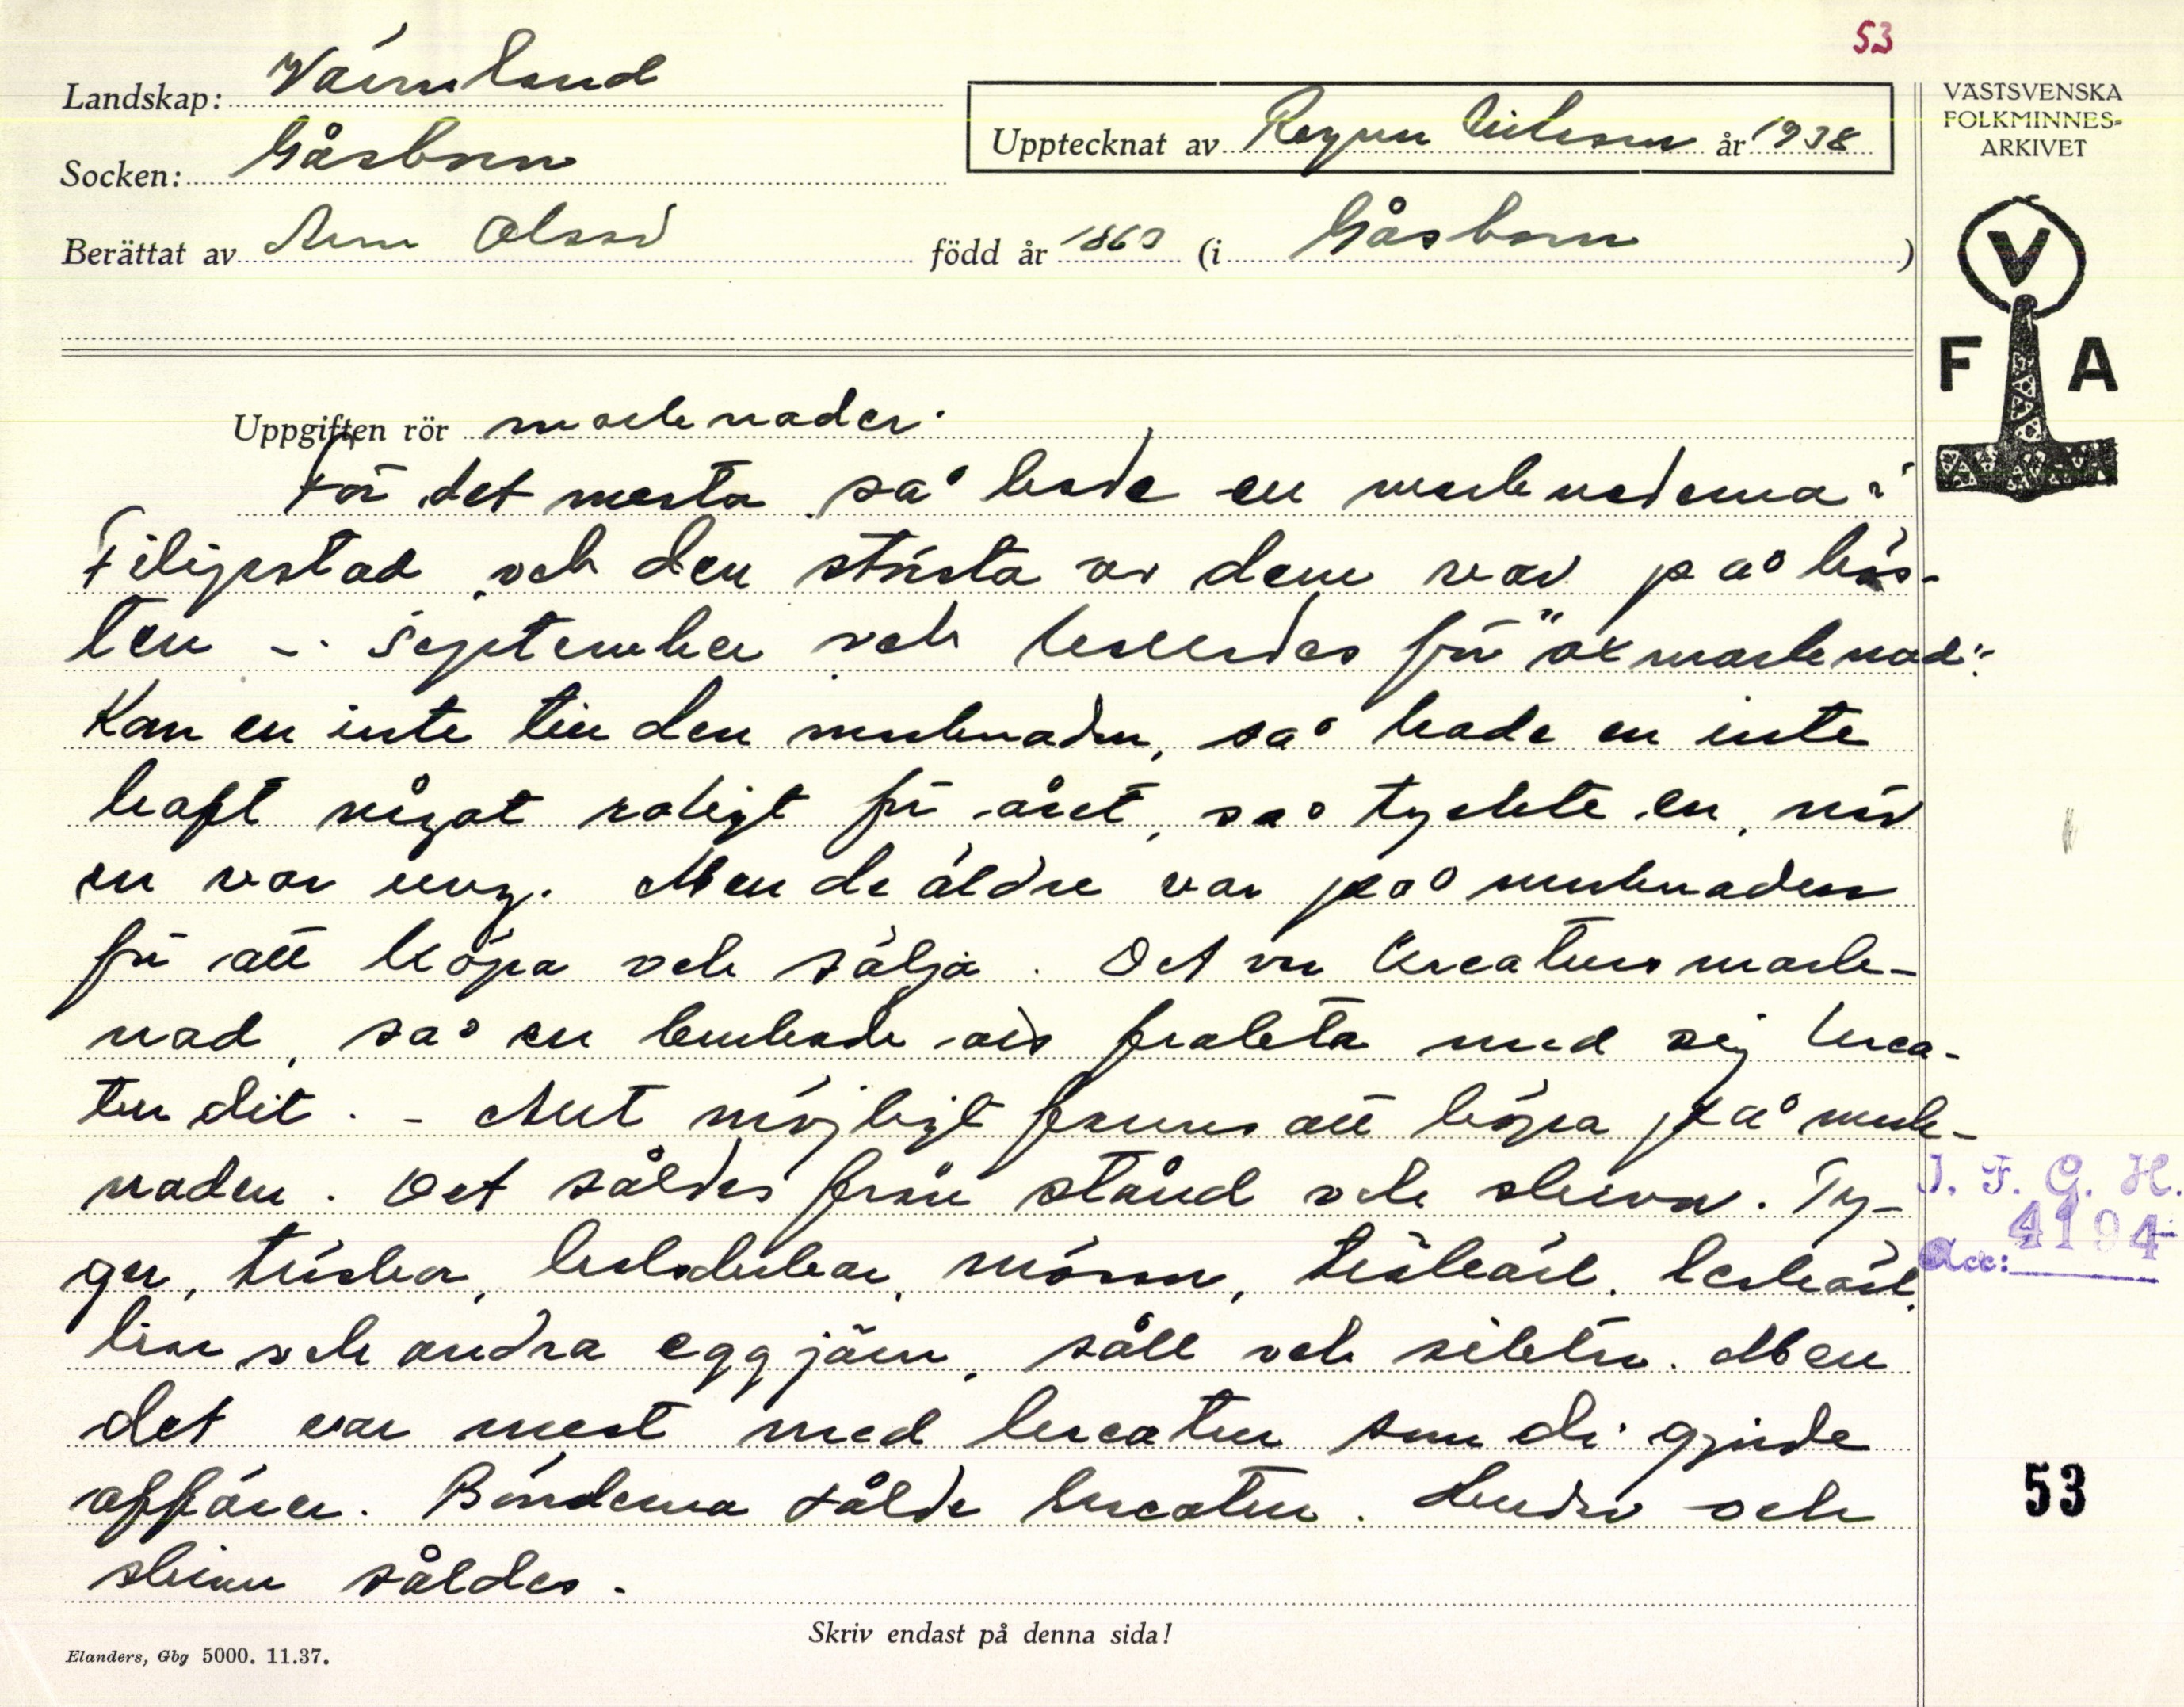 53
Landskap: Värmland
Socken: Gåsborn
Upptecknat av Ragnar Nilsson år 1938
VÄSTSVENSKA
FOLKMINNES-
ARKIVET
Berättat av Olsson född år 1863 (i Gåsborn)
V
F A
Uppgiften rör marknader.
För det mesta så hade en marknaderna i
Filipstad och den största av dem var på hös-
ten - September och kallades för "oxmarknad".
Kom en inte till den marknaden, så hade en inte
haft något roligt för året, så tyckte en, när
en var ung. Men de äldre var på marknaden
för att köpa och sälja. Det var kreatursmark-
nad, så en brukade ju frakta med sig krea-
tur dit. - Allt möjligt fanns att köpa på mark-
naden. Det såldes från stånd och skrin. Ty-
ger, träskor, halsdukar, mössor, träkärl, lerkärl,
liar och andra eggjärn, såll och silar. Men
det var mest med kreatur som di gjorde
affärer. Bönderna sålde kreatur. Hudar och
skinn såldes.
I. F. G. H.
4194
Acc:
53
Skriv endast på denna sida!
Elanders, Gbg 5000. 11.37.